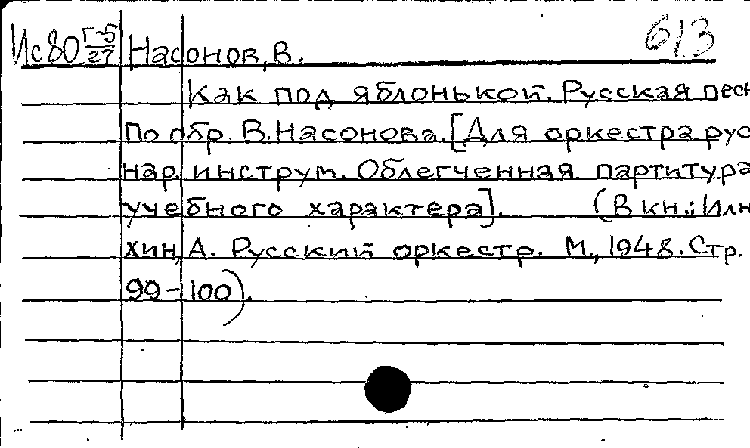 Ис80 Г-5/27 Насонов, В. 613
Как под яблонькой. Русская песн
По обр. В. Насонова. [Для оркестра рус
нар. инструм. Облегченная партитура
учебного характера]. (В кн.: Илю
хин, А. Русский оркестр. М., 1948. Стр.
99-100).